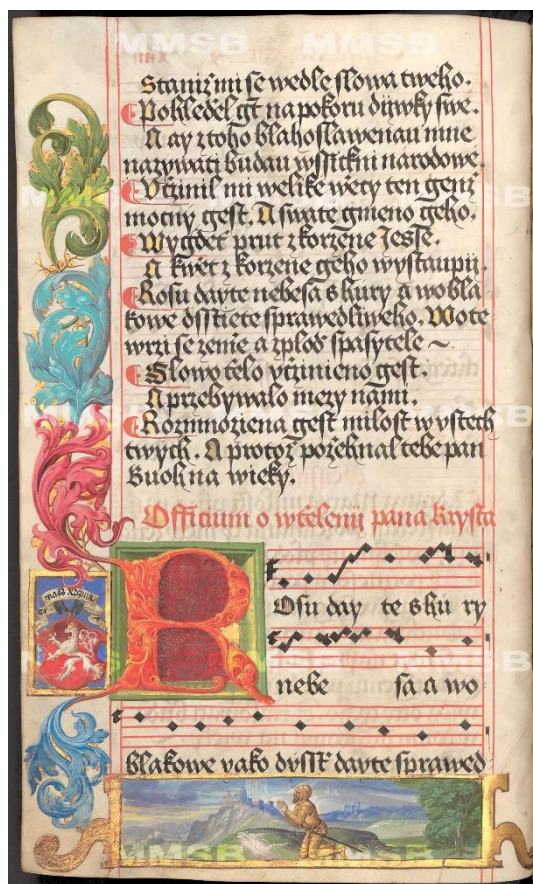 MMSB MMSB
Staniž mi se wedle slowa tweho.
Pohleděl gt na pokoru dijwky swe.
A ay z toho blahoslawenau mne
nazywati budau wssickni narodowe.
Včzinil mi welike wěcy ten genž
mocny gest. A swate gmeno geho.
Wygdet prut z korzene Jesse.
A kwět z korzene geho wystaupij.
Rosu dayte nebesa s hury a wobla
kowe dsstiete sprawedliweho. Wote
wrzi se zemie a zplod spasytele ~
Slowo tělo včzinieno gest.
A przebywalo mezy nami.
Rozmnožena gest milost w vstech
twych. A protož požehnal tebe pan
Buoh na wieky.
Officium o wtělenij pana Krysta
Rosu day te shu ry
nebe sa a wo
blakowe yako dysst dayte sprawed